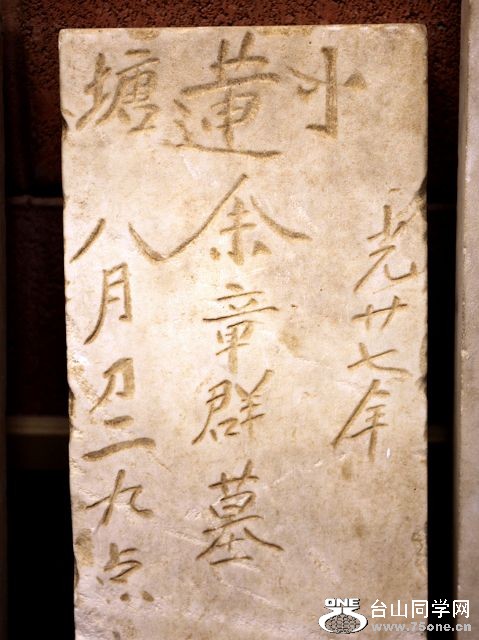 小蓮塘
光廿七年
余章群墓
八月刀二九点
ONE
台山同学网
www.75one.cn